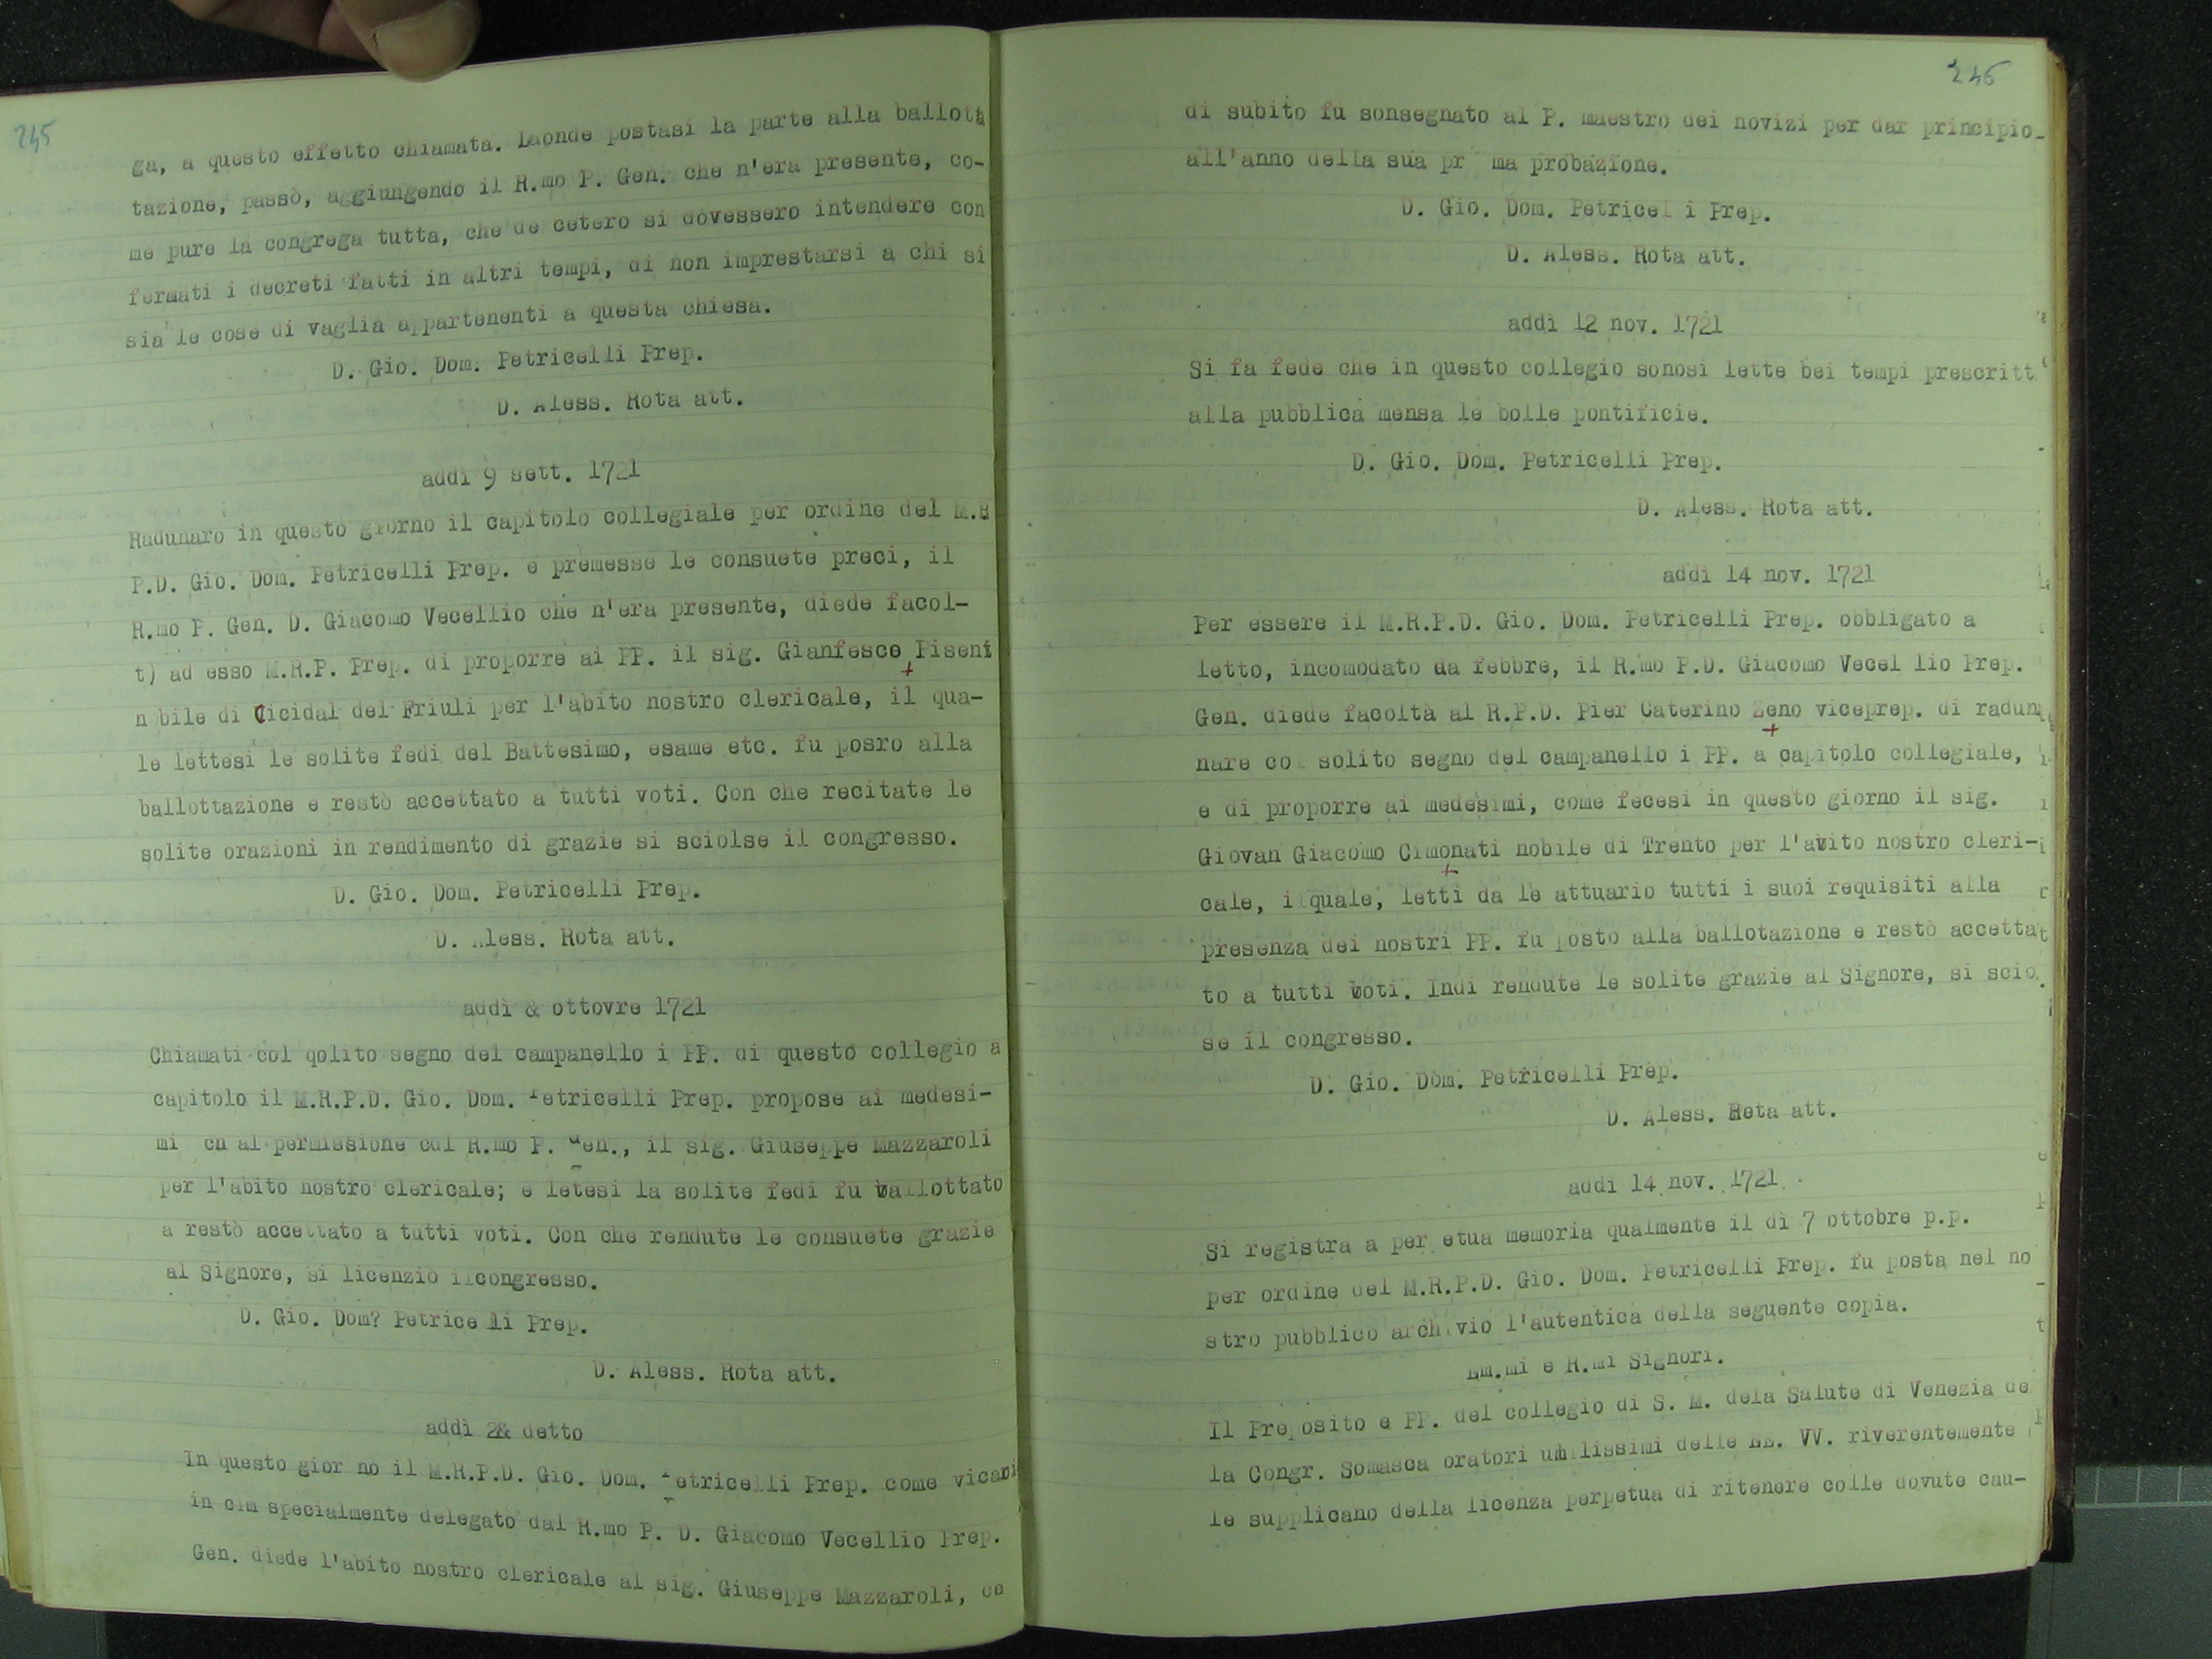 245
ga, a questo effetto chiamata. Laonde postasi la parte alla ballott
tazione, passò, aggiungendo il R.mo P. Gen. che n'era presente, co-
me pure la congrega tutta, che de cetero si dovessero intendere con
fermati i decreti fatti in altri tempi, di non imprestarsi a chi si
sia le cose di vaglia appartenenti a questa chiesa.
D. Gio. Dom. Petricelli Prep.
D. Aless. Rota att.
addì 9 sett. 1721
Radunaro in questo giorno il capitolo collegiale per ordine del M.R
P.D. Gio. Dom. Petricelli Prep. e premesse le consuete preci, il
R.mo P. Gen. D. Giacomo Vecellio che n'era presente, diede facol-
t) ad esso M.R.P. Prep. di proporre ai PP. il sig. Gianfesco Pisent
n bile di Cicidal del Friuli per l'abito nostro clericale, il qua-
le lettesi le solite fedi del Battesimo, esame etc. fu posro alla
ballottazione e restò accettato a tutti voti. Con che recitate le
solite orazioni in rendimento di grazie si sciolse il congresso.
D. Gio. Dom. Petricelli Prep.
D. Aless. Rota att.
addì & ottovre 1721
Chiamati col qolito segno del campanello i PP. di questo collegio a
capitolo il M.R.P.D. Gio. Dom. Petricelli Prep. propose ai medesi-
mi cn al permissione cdl R.mo P. Gen., il sig. Giuseppe Mazzaroli
per l'abito nostro clericale; e letesi la solite fedi fu ballottato
a restò accettato a tutti voti. Con che rendute le consuete grazie
al Signore, si licenziò ilcongresso.
D. Gio. Dom? Petrice li Prep.
D. Aless. Rota att.
addì 2& detto
In questo gior no il M.R.P.D. Gio. Dom. Petricelli Prep. come vicari
in cim specialmente delegato dal R.mo P. D. Giacomo Vecellio Prep.
Gen. diede l'abito nostro clericale al sig. Giuseppe Mazzaroli, ce
246
di subito fu sonsegnato al P. maestro dei novizi per dar principio
all'anno della sua pr ma probazione.
D. Gio. Dom. Petricel i Prep.
D. Aless. Rota att.
addì 12 nov. 1721
Si fa fede che in questo collegio sonosi lette bei tempi prescritt
alla pubblica mensa le bolle pontificie.
D. Gio. Dom. Petricelli Prep.
D. Aless. Rota att.
addì 14 nov. 1721
Per essere il M.R.P.D. Gio. Dom. Petricelli Prep. obbligato a
letto, incomodato da febbre, il R.mo P.D. Giacomo Vecel lio Prep.
Gen. diede facoltà al R.P.D. Pier Caterino Zeno viceprep. di radun
nare col solito segno del campanello i PP. a capitolo collegiale,
e di proporre ai medesimi, come fecesi in questo giorno il sig.
Giovan Giacomo Cimonati nobile di Trento per l'avito nostro cleri-
cale, il quale, letti da le attuario tutti i suoi requisiti alla
presenza dei nostri PP. fu posto alla ballotazione e restò accetta
to a tutti voti. Indi rendute le solite grazie al Signore, si scio
se il congresso.
D. Gio. Dom. Petricelli Prep.
D. Aless. Rota att.
addì 14 nov. 1721
Si registra a per etua memoria qualmente il dì 7 ottobre p.p.
per ordine del M.R.P.D. Gio. Dom. Petricelli Prep. fu posta nel no
stro pubblico archivio l'autentica della seguente copia.
Em.mi e R.mi Signori.
Il Preposito e PP. del collegio di S. M. dela Salute di Venezia de
la Congr. Somasca oratori umilissimi delle EE. VV. riverentemente
le supplicano della licenza perpetua di ritenere colle dovute cau-